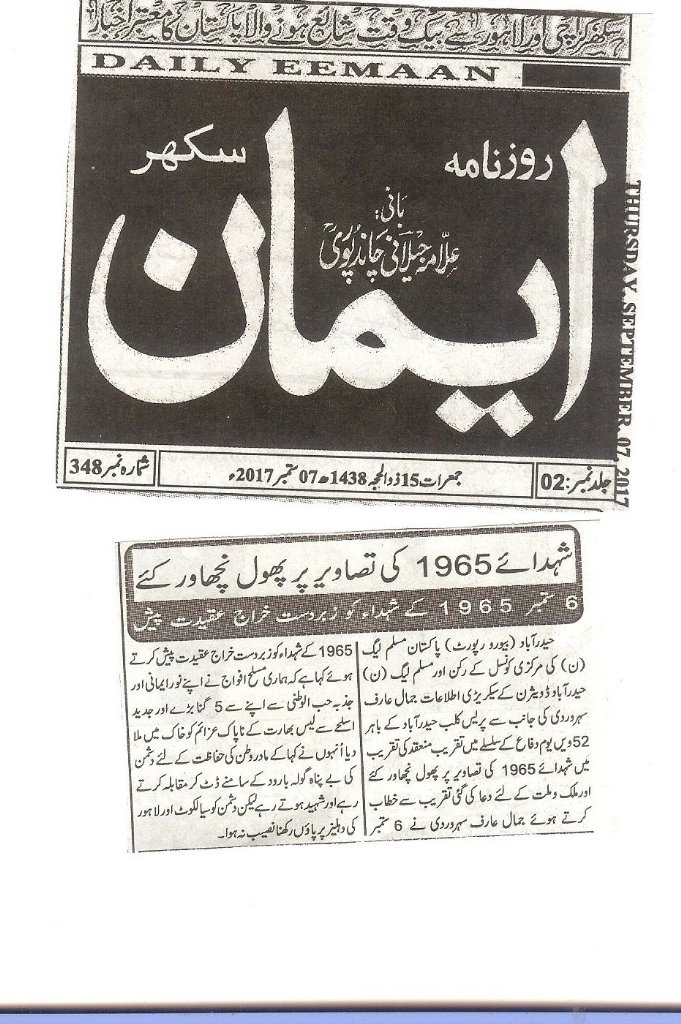 سکھر کراچی اور لاہور سے بیک وقت شائع ہونے والا پاکستان کا معتبر اخبار
DAILY EEMAAN
روزنامہ
سکھر
ایمان
بانی:
علامہ جیلانی چاندپوری
THURSDAY. SEPTEMBER. 07, 2017
جلد نمبر: 02
جمعرات 15 ذوالحجہ 1438ھ 07 ستمبر 2017ء
شمارہ نمبر 348
شہدائے 1965 کی تصاویر پر پھول نچھاور کئے
6 ستمبر 1965 کے شہداء کو زبردست خراج عقیدت پیش
حیدرآباد (بیورو رپورٹ) پاکستان مسلم لیگ
(ن) کی مرکزی کونسل کے رکن اور مسلم لیگ (ن)
حیدرآباد ڈویژن کے سیکریٹری اطلاعات جمال عارف
سہروردی کی جانب سے پریس کلب حیدرآباد کے باہر
52 ویں یوم دفاع کے سلسلے میں تقریب منعقد کی تقریب
میں شہدائے 1965 کی تصاویر پر پھول نچھاور کئے
اور ملک و ملت کے لئے دعا کی گئی تقریب سے خطاب
کرتے ہوئے جمال عارف سہروردی نے 6 ستمبر
1965 کے شہداء کو زبردست خراج عقیدت پیش کرتے
ہوئے کہا ہے کہ ہماری مسلح افواج نے اپنے نور ایمانی اور
جذبہ حب الوطنی سے اپنے سے 5 گنا بڑے اور جدید
اسلحے سے لیس بھارت کے ناپاک عزائم کو خاک میں ملا
دیا اُنہوں نے کہا کے مادر وطن کی حفاظت کے لئے دشمن
کی بے پناہ گولہ بارود کے سامنے ڈٹ کر مقابلہ کرتے
رہے اور شہید ہوتے رہے لیکن دشمن کو سیالکوٹ اور لاہور
کی دہلیز پر پاؤں رکھنا نصیب نہ ہوا۔